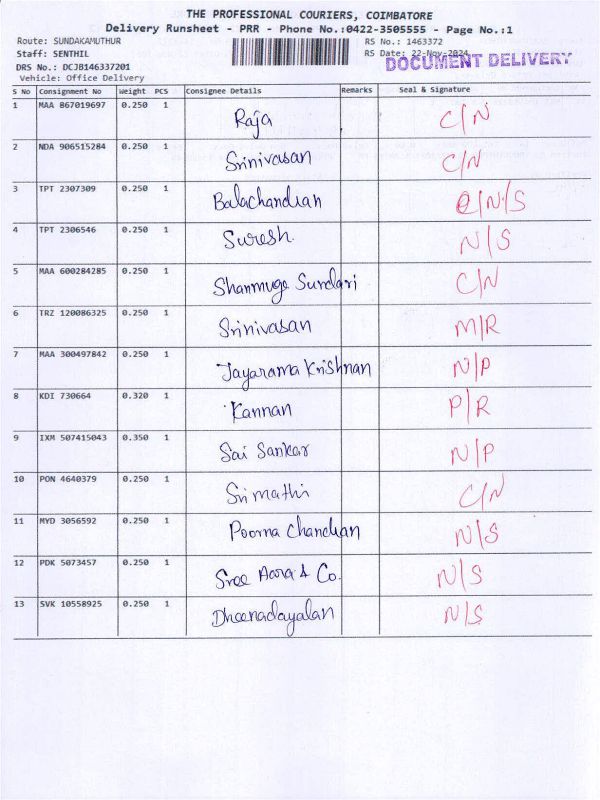 THE PROFESSIONAL COURIERS, COIMBATORE
Delivery Runsheet - PRR - Phone No.:0422-3505555 - Page No.:1
Route: SUNDAKAMUTHUR RS No.: 1463372
Staff: SENTHIL RS Date: 22-Nov-2024
DOCUMENT DELIVERY
DRS No.: DCJB146337201
Vehicle: Office Delivery
S No Consignment No Weight PCS Consignee Details Remarks Seal & Signature
1 MAA 867019697 0.250 1 Raja C/N
2 NDA 906515284 0.250 1 Srinivasan C/N
3 TPT 2307309 0.250 1 Balachandran C/N/S
4 TPT 2306546 0.250 1 Suresh. N/S
5 MAA 600284285 0.250 1 Shanmuga Sundari C/N
6 TRZ 120086325 0.250 1 Srinivasan M/R
7 MAA 300497842 0.250 1 Jayarama Krishnan N/P
8 KDI 730664 0.320 1 Kannan P/R
9 IXM 507415043 0.350 1 Sai Sankar N/P
10 PON 4640379 0.250 1 Srimathi C/N
11 MYD 3056592 0.250 1 Poorna Chandran N/S
12 PDK 5073457 0.250 1 Sree & Co. N/S
13 SVK 10558925 0.250 1 Dheenadayalan N/S